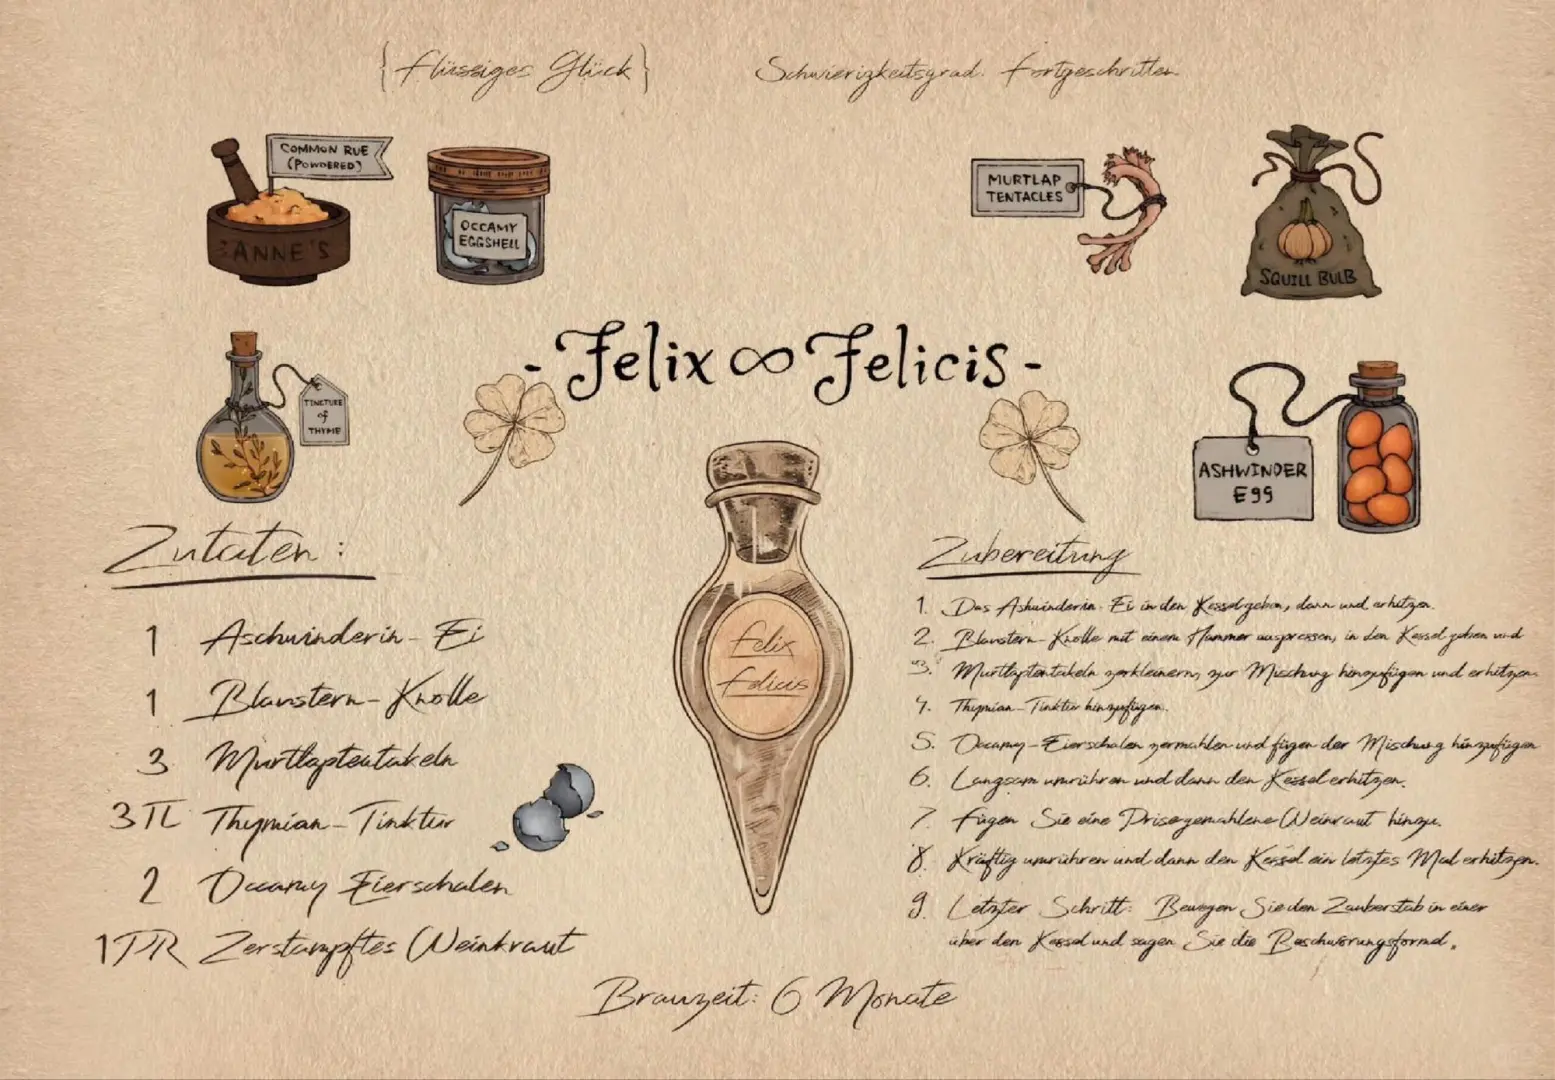 {Flüssiges Glück}
Schwierigkeitsgrad: Fortgeschritten
COMMON RUE
(POWDERED)
ANNE'S
OCCAMY
EGGSHELL
MURTLAP
TENTACLES
SQUILL BULB
- Felix ∞ Felicis -
TINCTURE
of
THYME
ASHWINDER
E99
Zutaten :
1 Aschwinderin - Ei
1 Blaustern - Knolle
3 Murtlaptentakeln
3 TL Thymian - Tinktur
2 Occamy Eierschalen
1 PR Zerstampftes Weinkraut
Felix
Felicis
Zubereitung
1. Das Ashwinderin - Ei in den Kessel geben, dann und erhitzen.
2. Blaustern - Knolle mit einem Hammer auspressen, in den Kessel geben und
3. Murtlaptentakeln zerkleinern, zur Mischung hinzufügen und erhitzen.
4. Thymian - Tinktur hinzufügen.
5. Occamy - Eierschalen zermahlen und fügen der Mischung hinzufügen
6. Langsam umrühren und dann den Kessel erhitzen.
7. Fügen Sie eine Prise gemahlene Weinraut hinzu.
8. Kräftig umrühren und dann den Kessel ein letztes Mal erhitzen.
9. Letzter Schritt: Bewegen Sie den Zauberstab in einer
über den Kessel und sagen Sie die Beschwörungsformel.
Brauzeit: 6 Monate